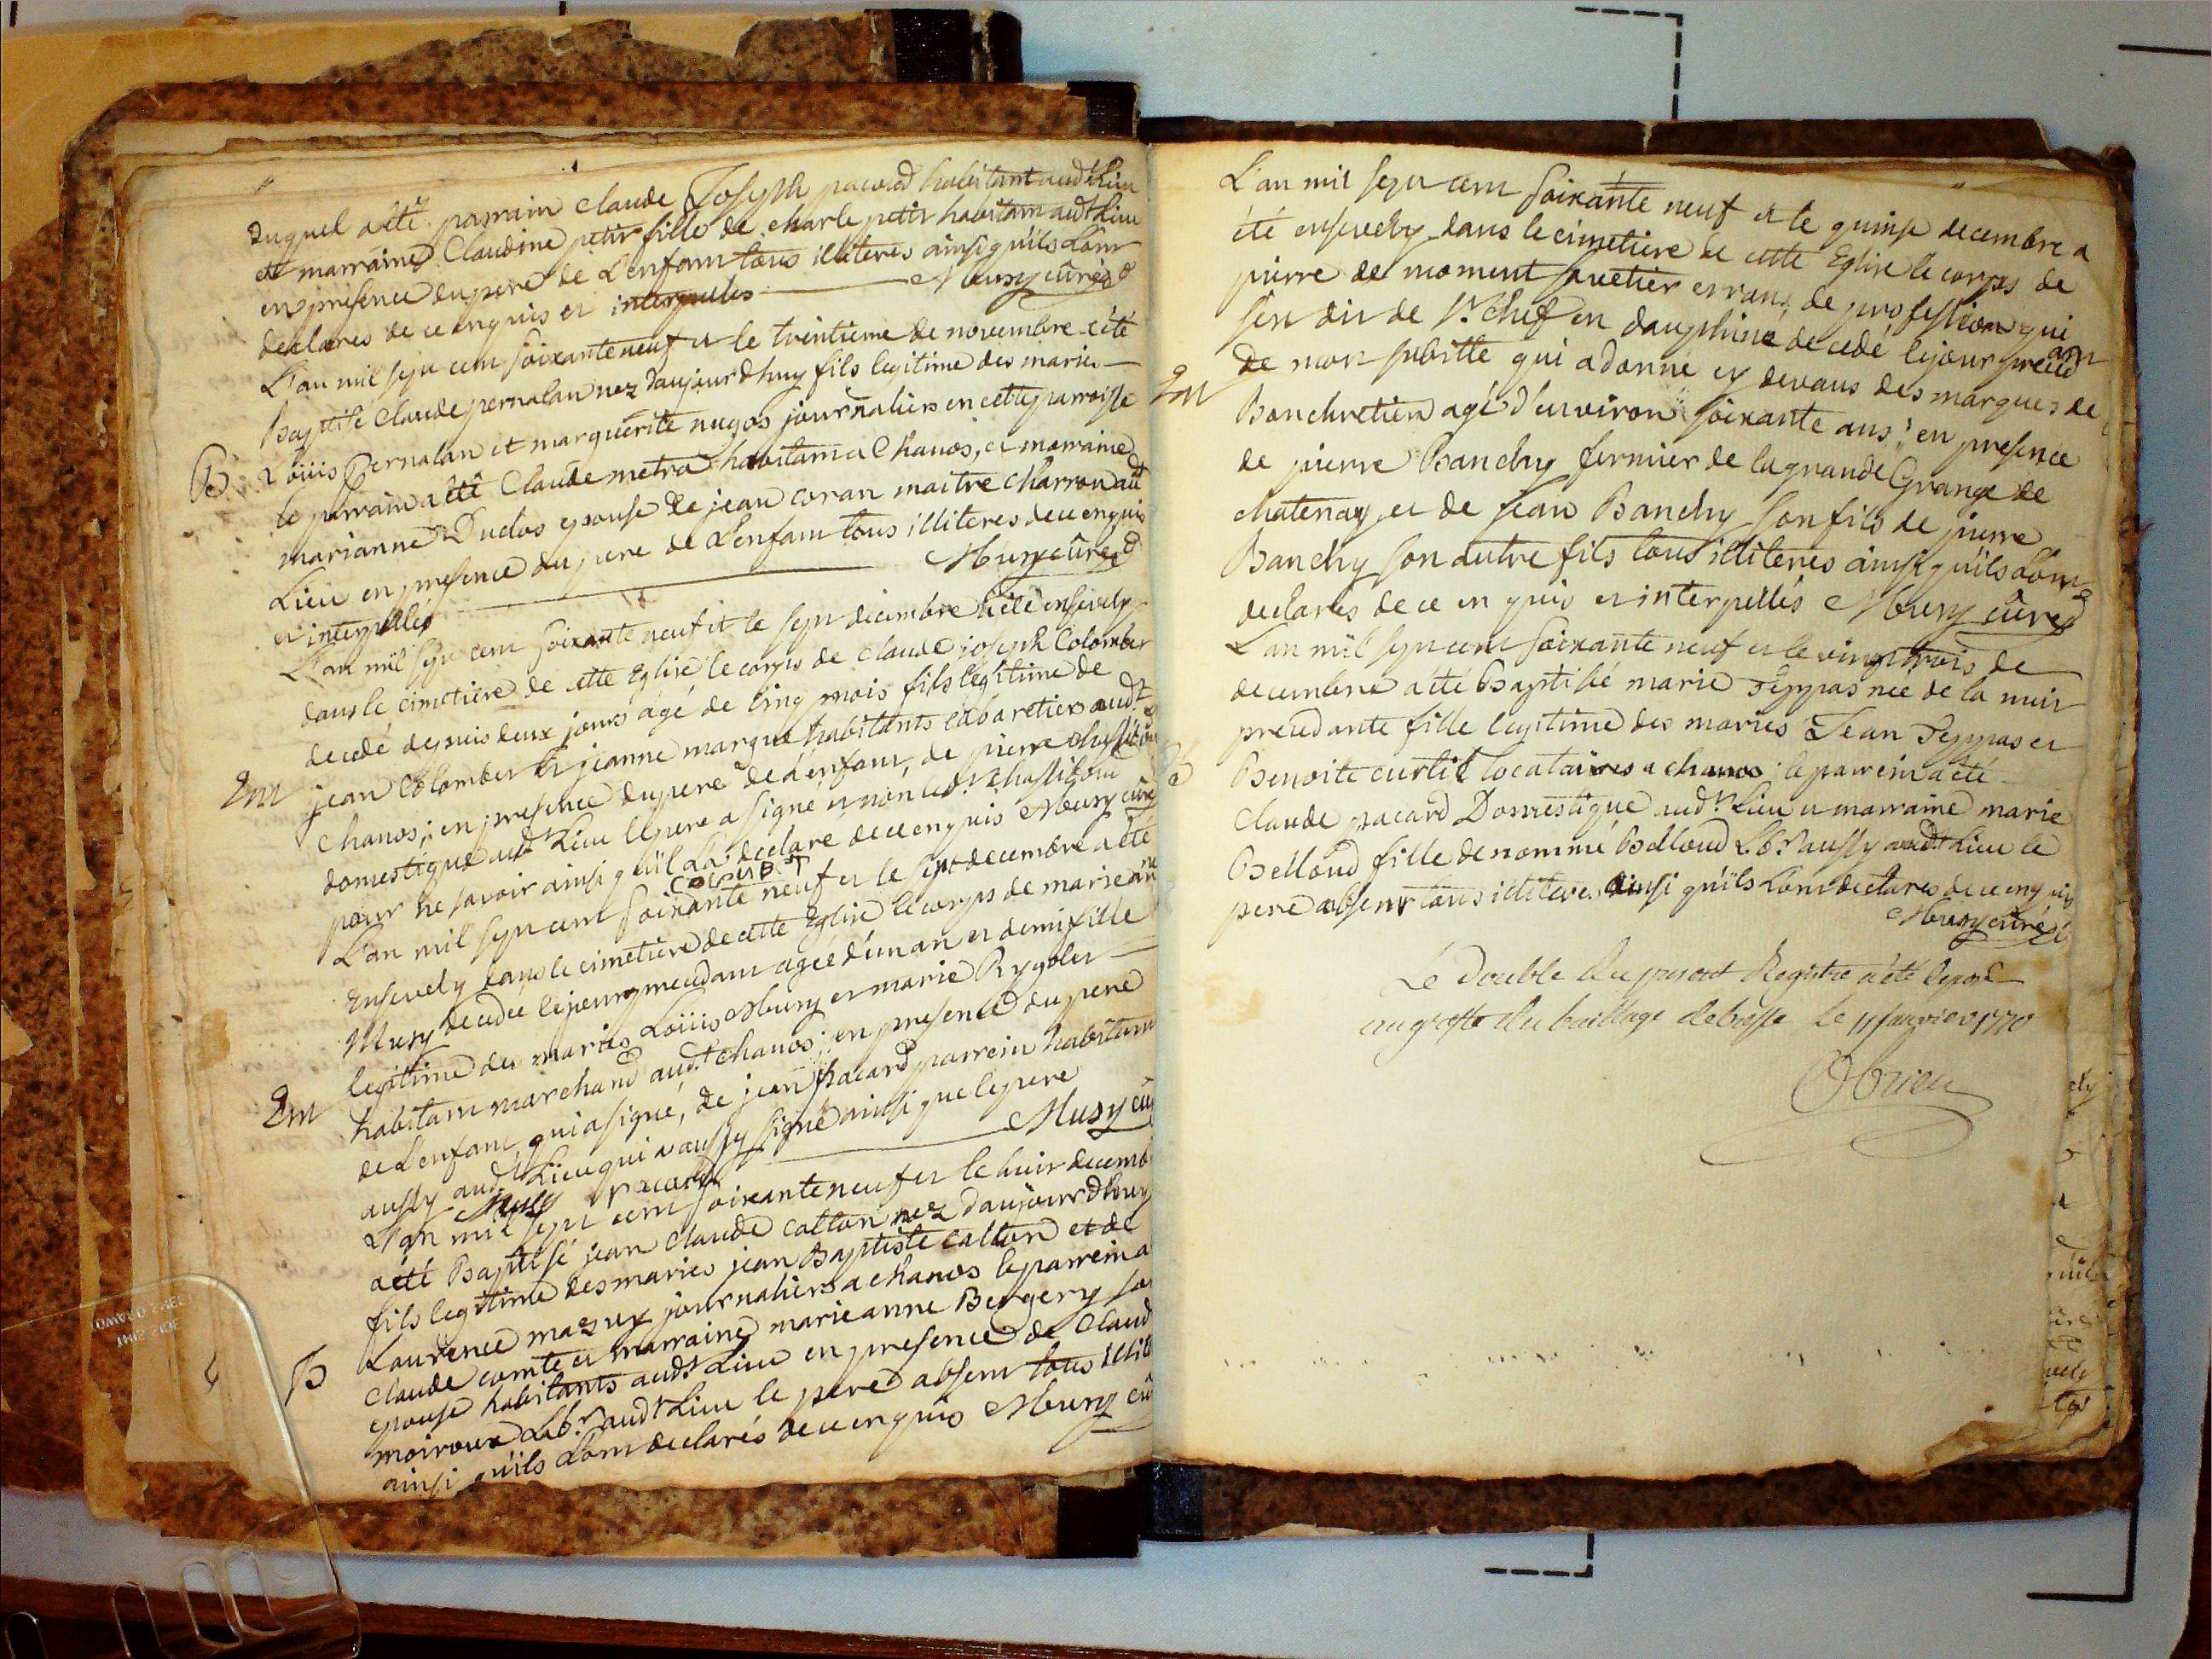 duquel a été parrain Claude Joseph pacard habitant audt lieu
et marraine Claudine petit fille de charle petit habitant audt lieu
en presence du pere de L'enfant tous illiteres ainsi qu'ils L'ont
declarés de ce enquis et interpellés Musy curé
L'an mil sept cent soixante neuf et le trentieme de novembre a été
Baptisé Claude pernalan nez daujourdhuy fils legitime des mariés
B Loüis Pernalan et marguerite nugos journaliers en cette parroisse
le parrain a été Claude metra habitant a Chanos, et marraine
marianne Duclos epouse de jean coran maitre charron audt
Lieu en presence du pere de L'enfant tous illiteres de ce enquis
et interpellés Musy curé
L'an mil sept cent soixante neuf et le sept decembre a été ensevely
dans le cimetiere de cette Eglise le corps de claude joseph Colomber
decedé depuis deux jours agé de cinq mois fils legitime de
Em jean Colomber et jeanne marque habitants cabaretiers audt
Chanos; en presence du pere de L'enfant, de pierre
domestique audt Lieu le pere a signé et non ledt
pour ne savoir ainsi qu'il L'a declare de ce enquis Musy curé
COLUBT
L'an mil sept cent soixante neuf et le sept decembre a été
Ensevely dans le cimetiere de cette Eglise le corps de marieanne
Musy decedée le jour precedant agée d'un an et demi fille
legitime des mariés Loüis Musy et marie Rygolet
Em habitant marchand audt chanos; en presence du pere
de L'enfant qui a signé, de jean pacard parrein habitant
aussy audt Lieu qui a aussy signé ainsi que le pere
Musy pacard Musy cu
L'an mil sept cent soixante neuf et le huit decemb
a été Baptisé jean claude catton nez daujourdhuy
fils legitime des mariés jean Baptiste catton et de
Laurence mazuy journaliers a chanos le parrein a
B Claude comte et marraine marie anne Bergery sa
epouse habitants audt Lieu en presence de Claud
moiroux Lbr. audt Lieu le pere absent tous illit
ainsi qu'ils L'ont declarés de ce enquis Musy cu
L'an mil sept cent soixante neuf et le quinse decembre a
été ensevely dans le cimetiere de cette Eglise le corps de
pierre de moment savetier errant de profession qui
s'en dit de St. chef en dauphiné decedé le jour preced ant
Em de mort subitte qui a donné cy devant des marques de
Bon chretien agé d'environ soixante ans; en presence
de pierre Banchy fermier de la grande Grange de
chatenay et de jean Banchy son fils de pierre
Banchy son autre fils tous illiteres ainsi qu'ils L'ont
declarés de ce en quis et interpellés Musy curé
L'an mil sept cent soixante neuf et le vingt trois de
decembre a été Baptisé marie Feppas née de la nuit
precedante fille legitime des mariés Jean Feppas et
B Benoite curtil locataires a chanos le parrein a été
Claude pacard Domestique audt. Lieu et marraine marie
Belloud fille de nommé Belloud Lbr. aussy audt Lieu le
pere absent tous illiteres ainsi qu'ils L'ont declarés de ce enquis
Musy curé
Le double du present Registre a été deposé
au greffe du bailliage de bresse le 11 janvier 1770